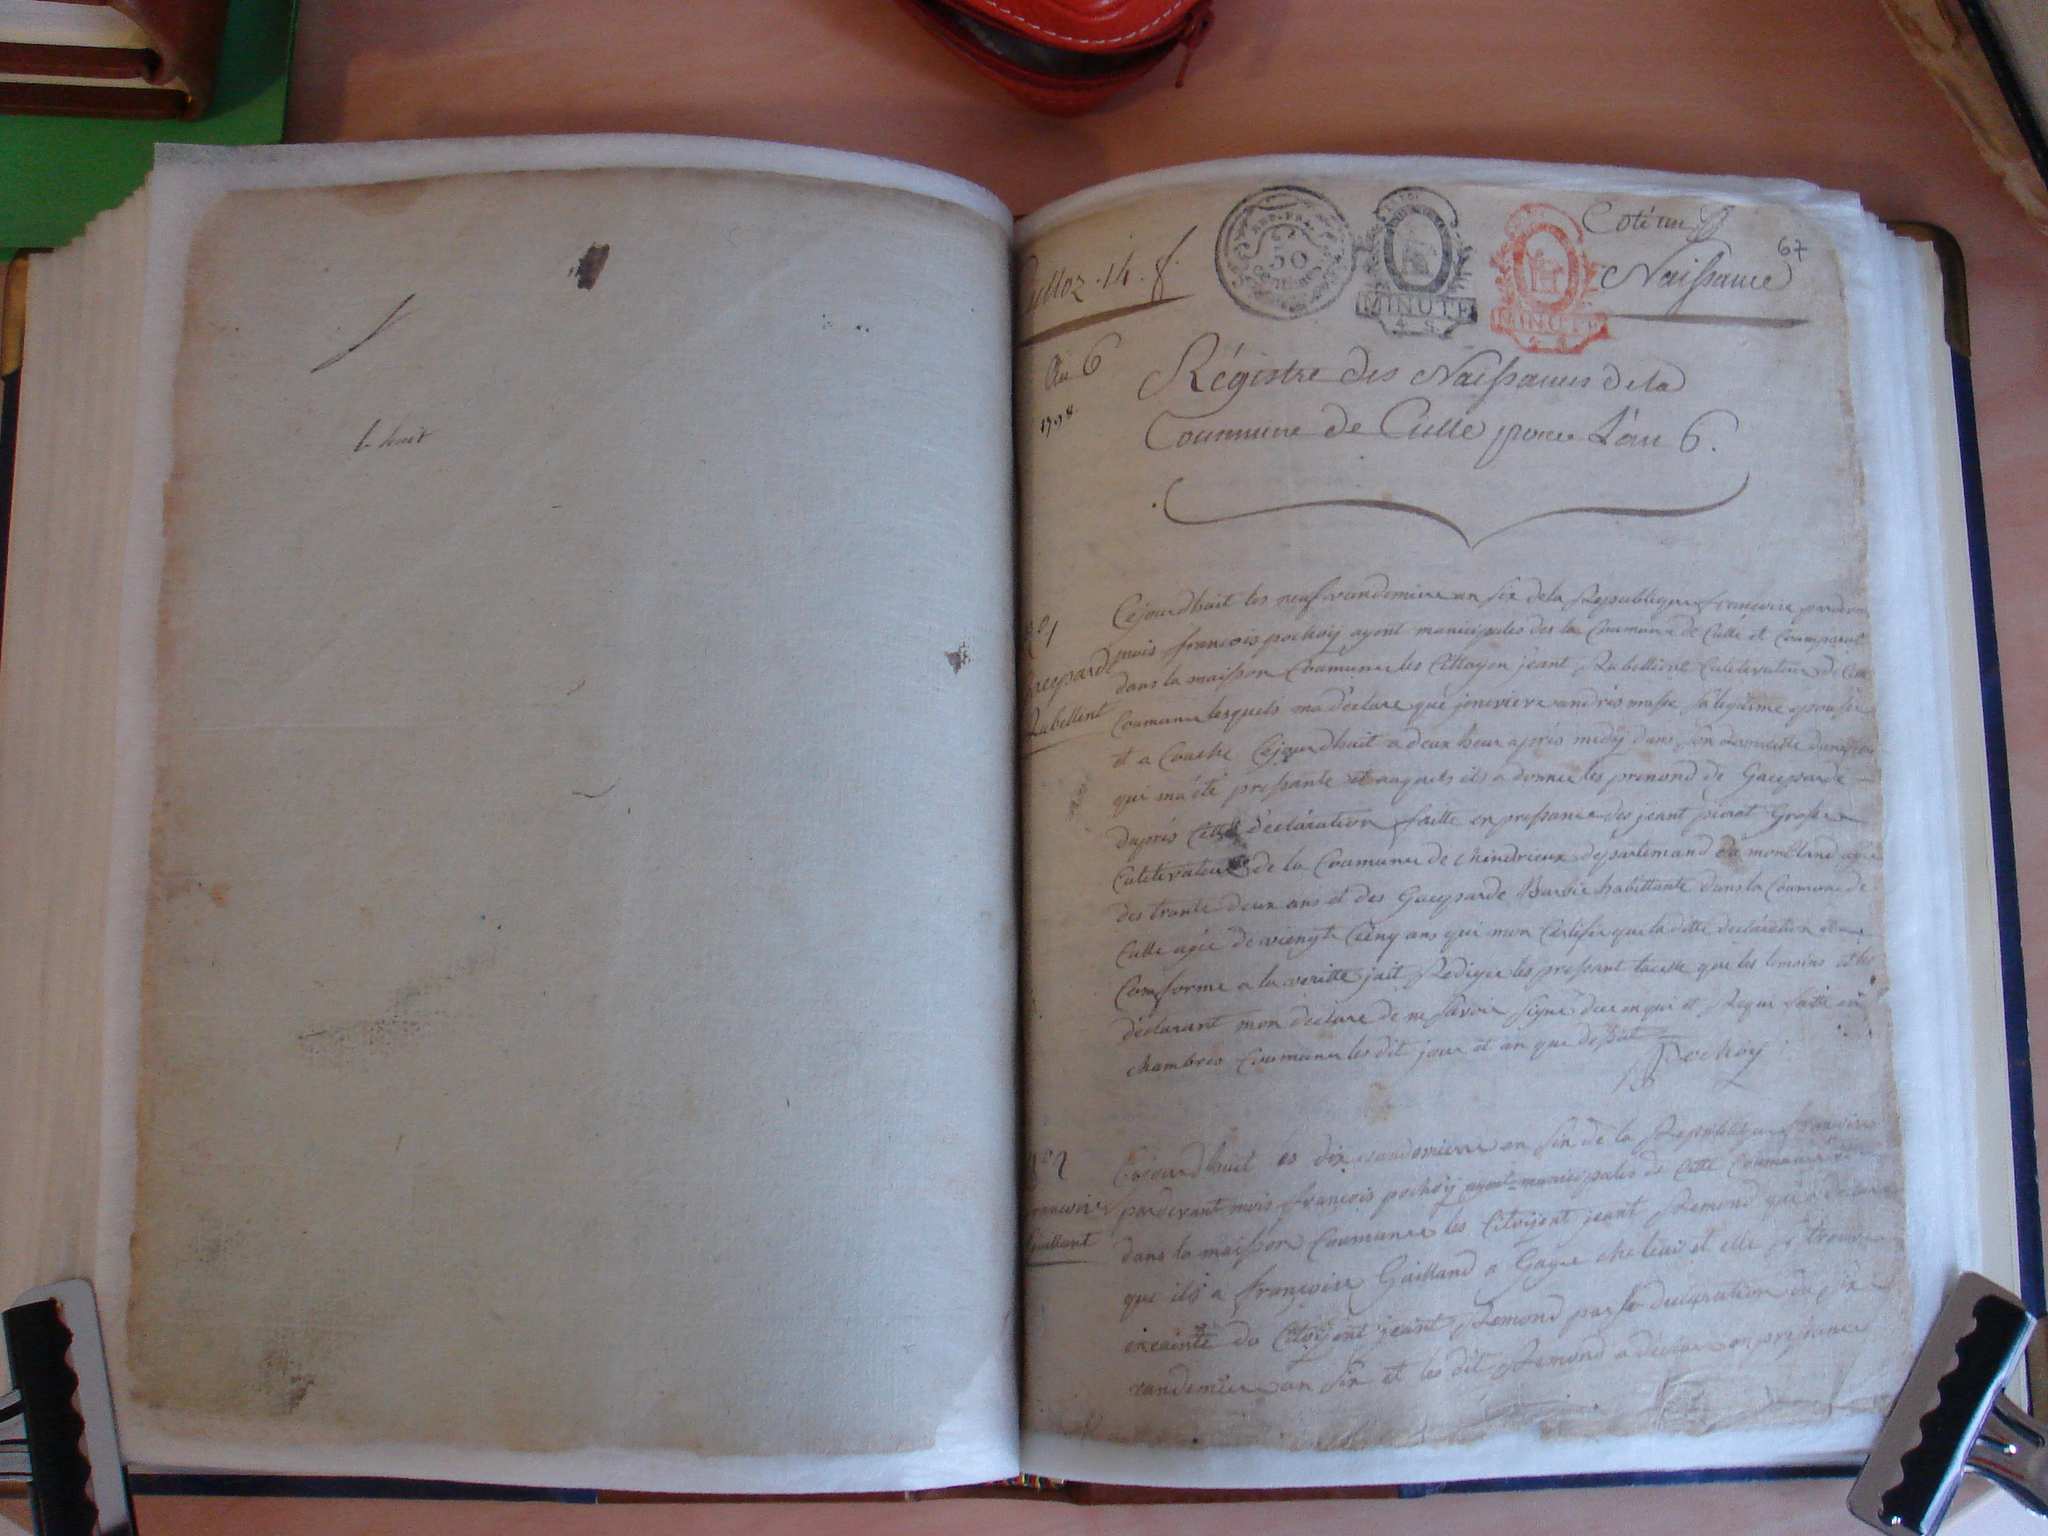 L huit
Culloz . 14 . f.
Coté un
67
REP. FRA.
50
CENTIMES
MINUTE
4 S.
MINUTE
4 S.
Naissance
An 6
1798.
Régistre des Naissances de la
Commune de Culle pour L'an 6.
No 1
Gacparde
Rubellent
Cejourdhuit les neuf vandemiere an six de la Republique francoise pardevan
mois françois pochoy ajent municipales des la Coumune de Culle et Comparut
dans la maisson Coumune les Cittoyen jeant Rubellent Culitivateur de Cette
Coumune lesquels ma déclare que jenevieve andrés masse sa legitime epousse
et a Couche Cejourdhuit a deux heur aprés midÿ dans son domicille dune fille
qui ma été pressante et auquels ils a donne les prenond de Gacparde
dapres Cette déclaration faitte en pressance des jeant pierat Grosse
Culitivateur de la Coumune de Chindrieux departemand du montbland agé
des trante deux ans et des Gacparde Barbie habittante dans la Coumune de
Culle agée de viengt Cenq ans qui mon Certifie que la ditte declaration et
Comforme a la veritte jait Redigee les pressant lacette que les temoins et les
déclarant mon declare de ne savoir signe de ce enqui et Requi faitte en
chambres Coumune les dit jour et an que dessut
Pochoy
No 2
francoise
Gaillant
Cejourdhuit les dix vandemiere an six de la Republique francoise
pardevant mois françois pochoy ajent municipales de Cette Coumune
dans la maisson Coumune les Citoyent jeant Remond qui a declare
que ils a françoise Gailland a Gage chei lui et elle s trouve
encainte du Citoyent jeant Remond par sa declaration du six
vandemiere an six et les dit Remond a déclare en pressance